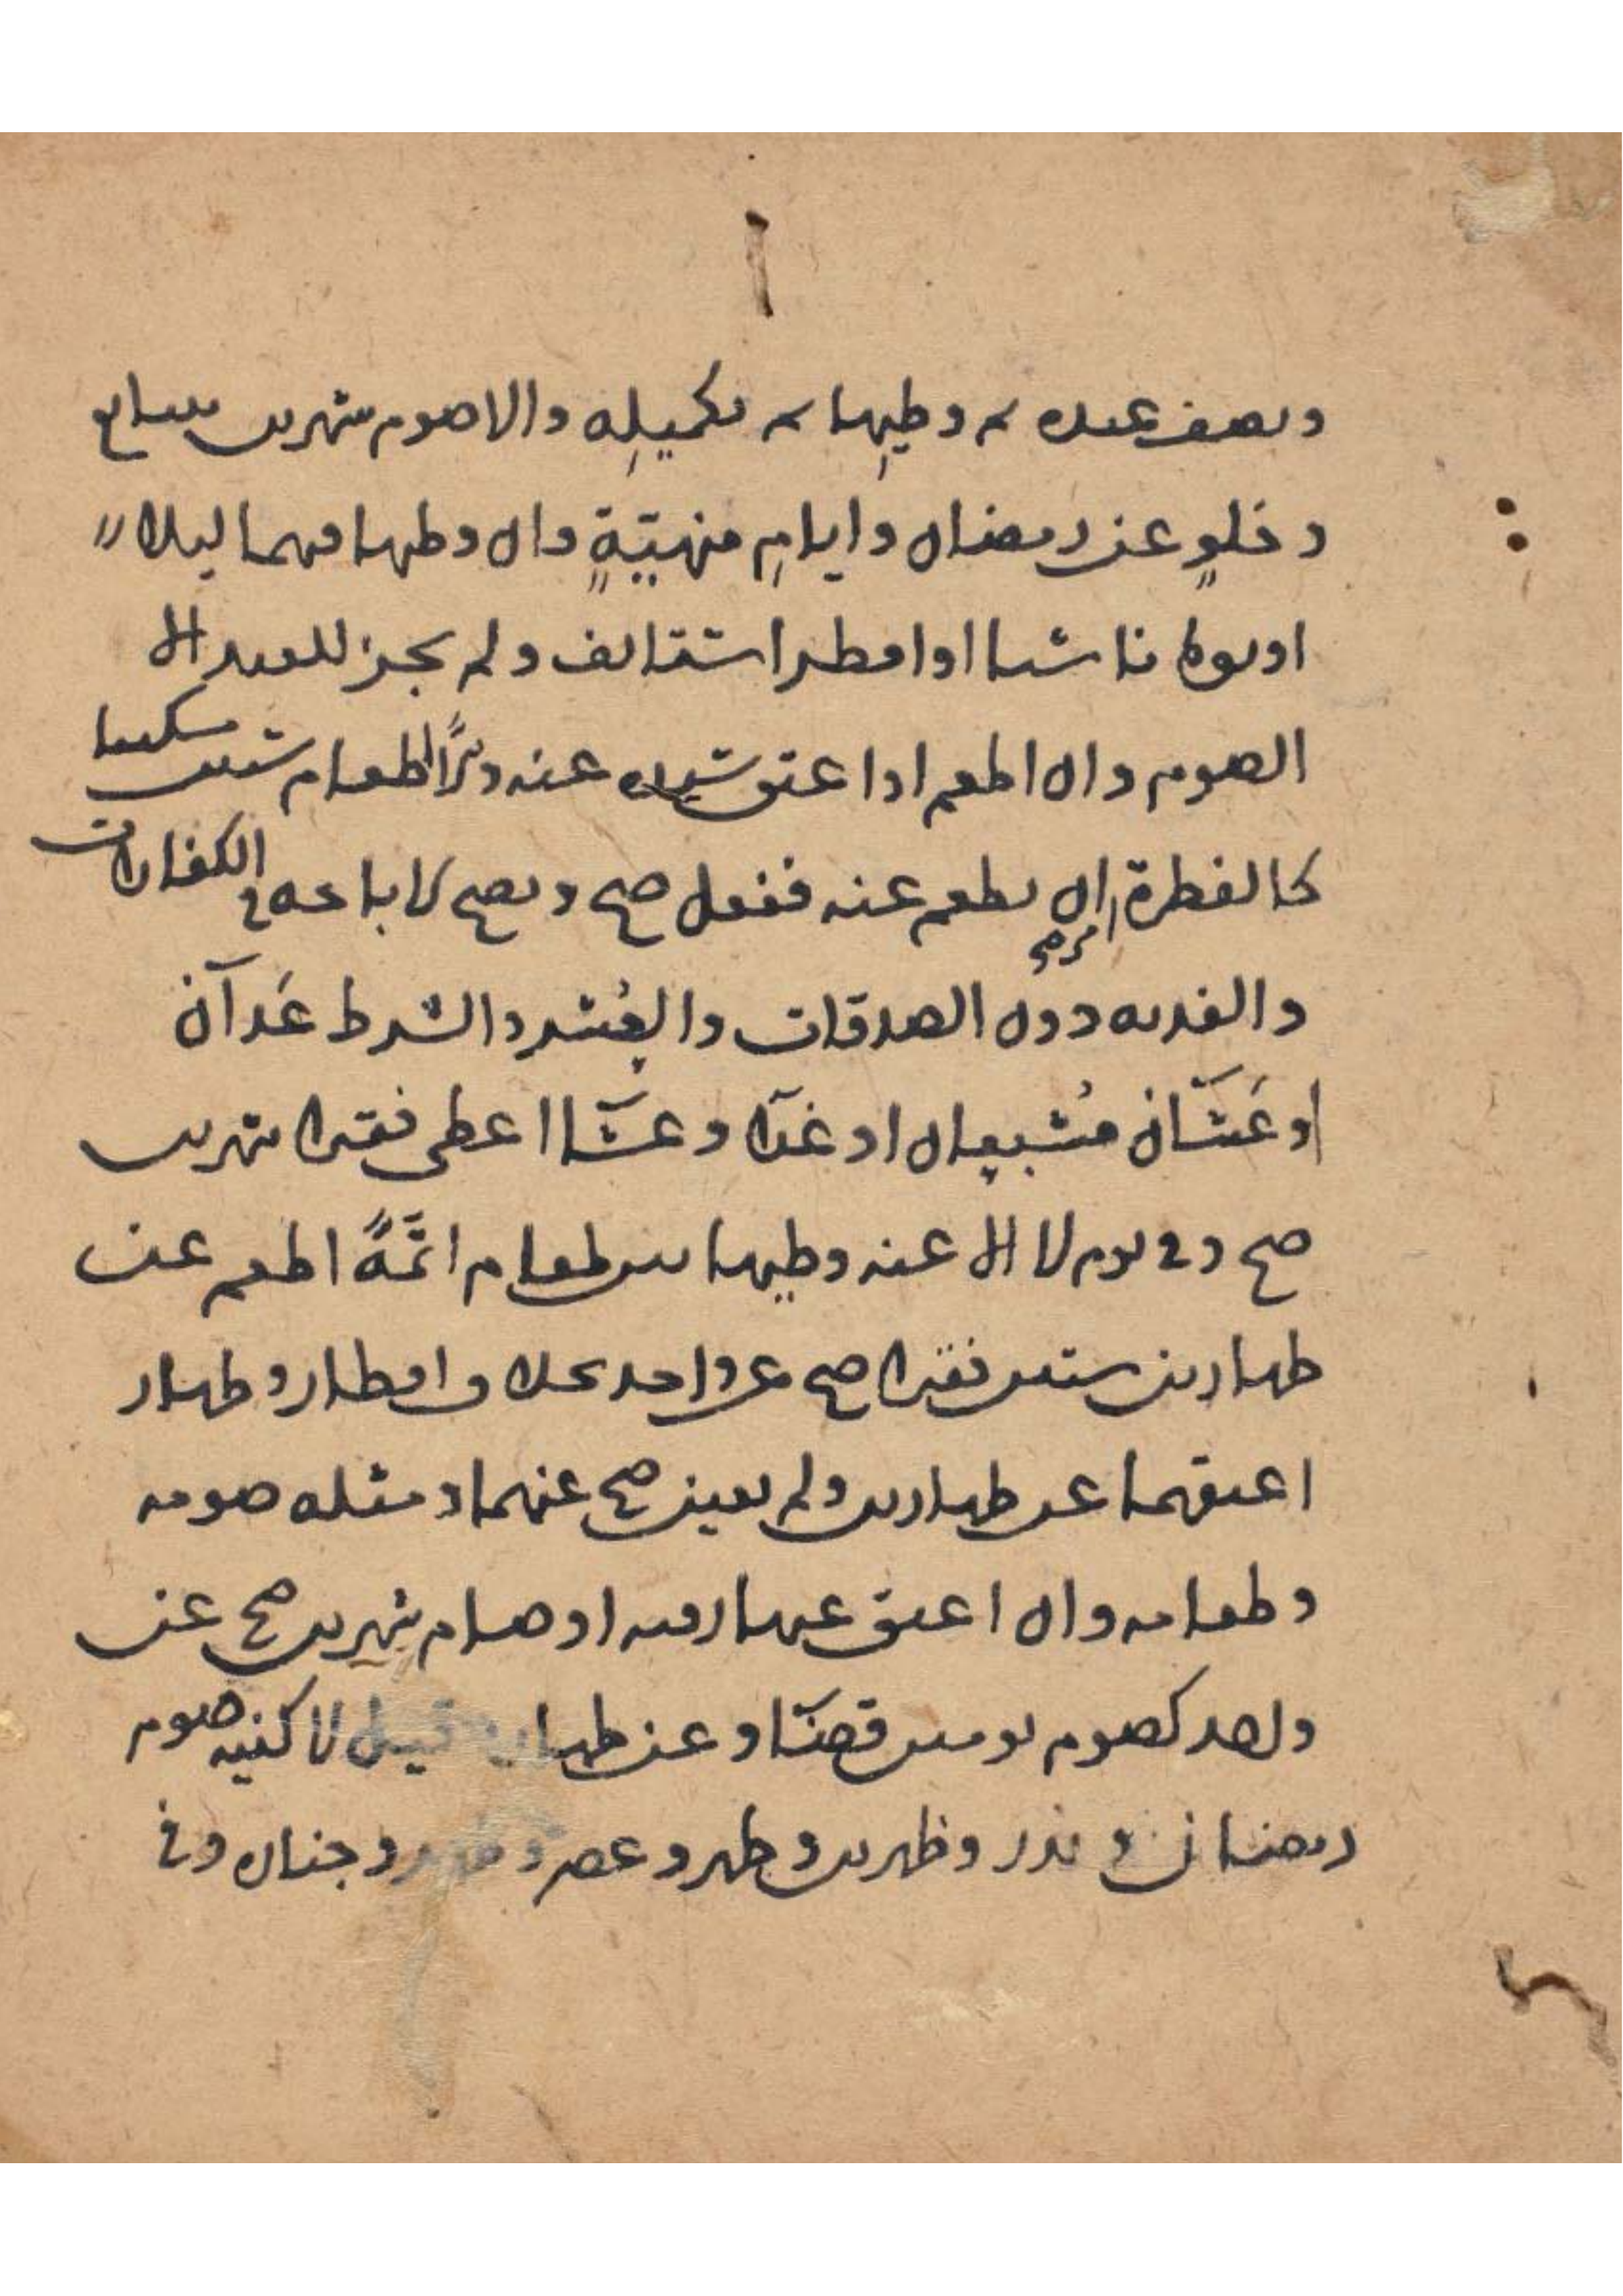 ونصف عبده ثم وطيها ثم تكميله والا صوم شهرين بتتابع
وخلو عن رمضان وايام منهية وان وطيها فيهما ليلا
او يوما ناسيا او افطر استانف ولم يجز للعبد الا
الصوم وان اطعم او اعتق سيده عنه والا اطعام ستين مسكينا
كالفطرة امر من ان يطعم عنه ففعل صح وتصح الاباحة في الكفارات
والفدية دون الصدقات والعشر والشرط غداآن
او عشاآن مشبعان او غدا وعشا اعطى فقيرا شهرين
صح وفي يوم لا الا عنه وطيها بين طعام اتمه اطعم عن
ظهارين ستين فقيرا صح عن واحد بخلاف افطار وظهار
اعتقهما عن ظهارين ولم يعين صح عنهما ومثله صومه
وطعامه وان اعتق عنهما رقبة او صام شهرين صح عن
واحد كصوم يومين قضا وعن ظهار قيل لا كنية صوم
رمضان ونذر وظهرين وظهر وعصر وجنازة وفي